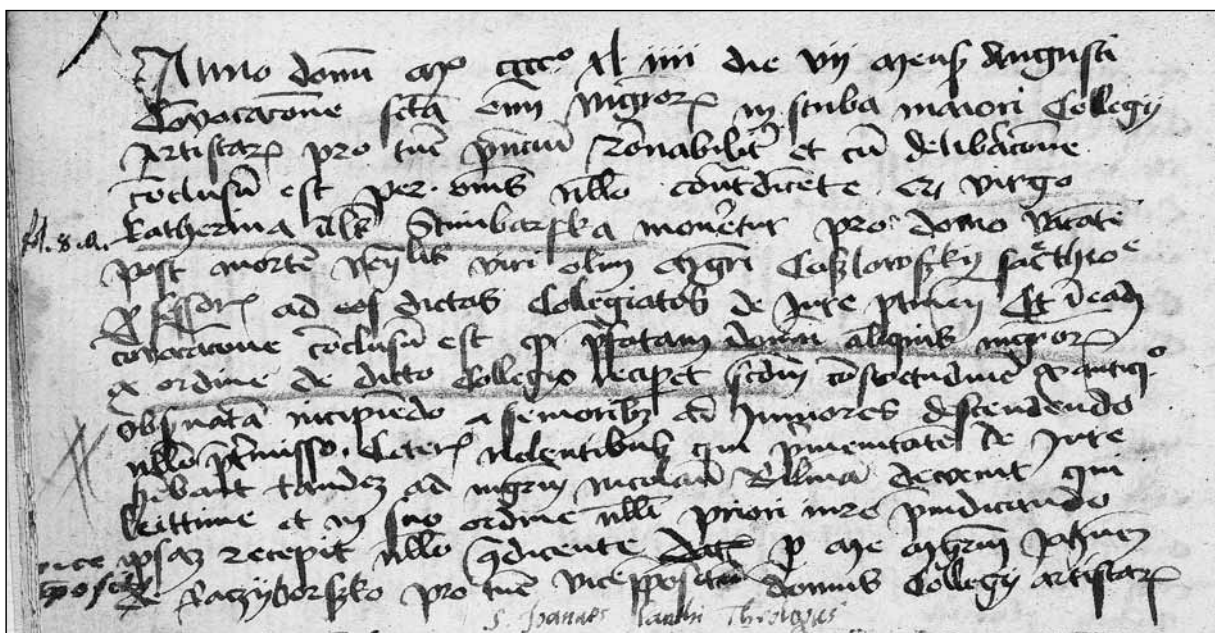 Anno domini Mo cccco xl iiii die vii Mens Augusti
Convocacone fcta omnium mgrorum in stuba maiori Collegii
Artistarum pro tunc pncium Ronabilit et cum delibacone
conclusum est per omnes nullo contradicente qr virgo
fol. 8. a. katherina alias Stinbarska moneretur pro domo vacante
post mortem venlis viri olim Mgri Coszlowszky sacre theoe
pfessoris ad eos dictos Collegiatos de Iure ptinen Et in eadem
convocacone conclusum est qr pfatam domum aliquis mgrorum
ex ordine de dicto Collegio reciperet scdm consuetudinem ex antiquo
obsvatam incipiendo a senioribus ad Iuniores descendendo
nullo ptermisso. Ceteris nolentibus qui pvenitatem de Iure
hebant tandem ad mgrum nicolaum devenit qui
leittime et in suo ordine nulli priori iure piudicando
ipsam recepit nullo contradicente p me Mgrum Iohannem
de Raczyborszko pro tunc viceppositum domus Collegii artistarum
S. Ioannes Cantii Theologus